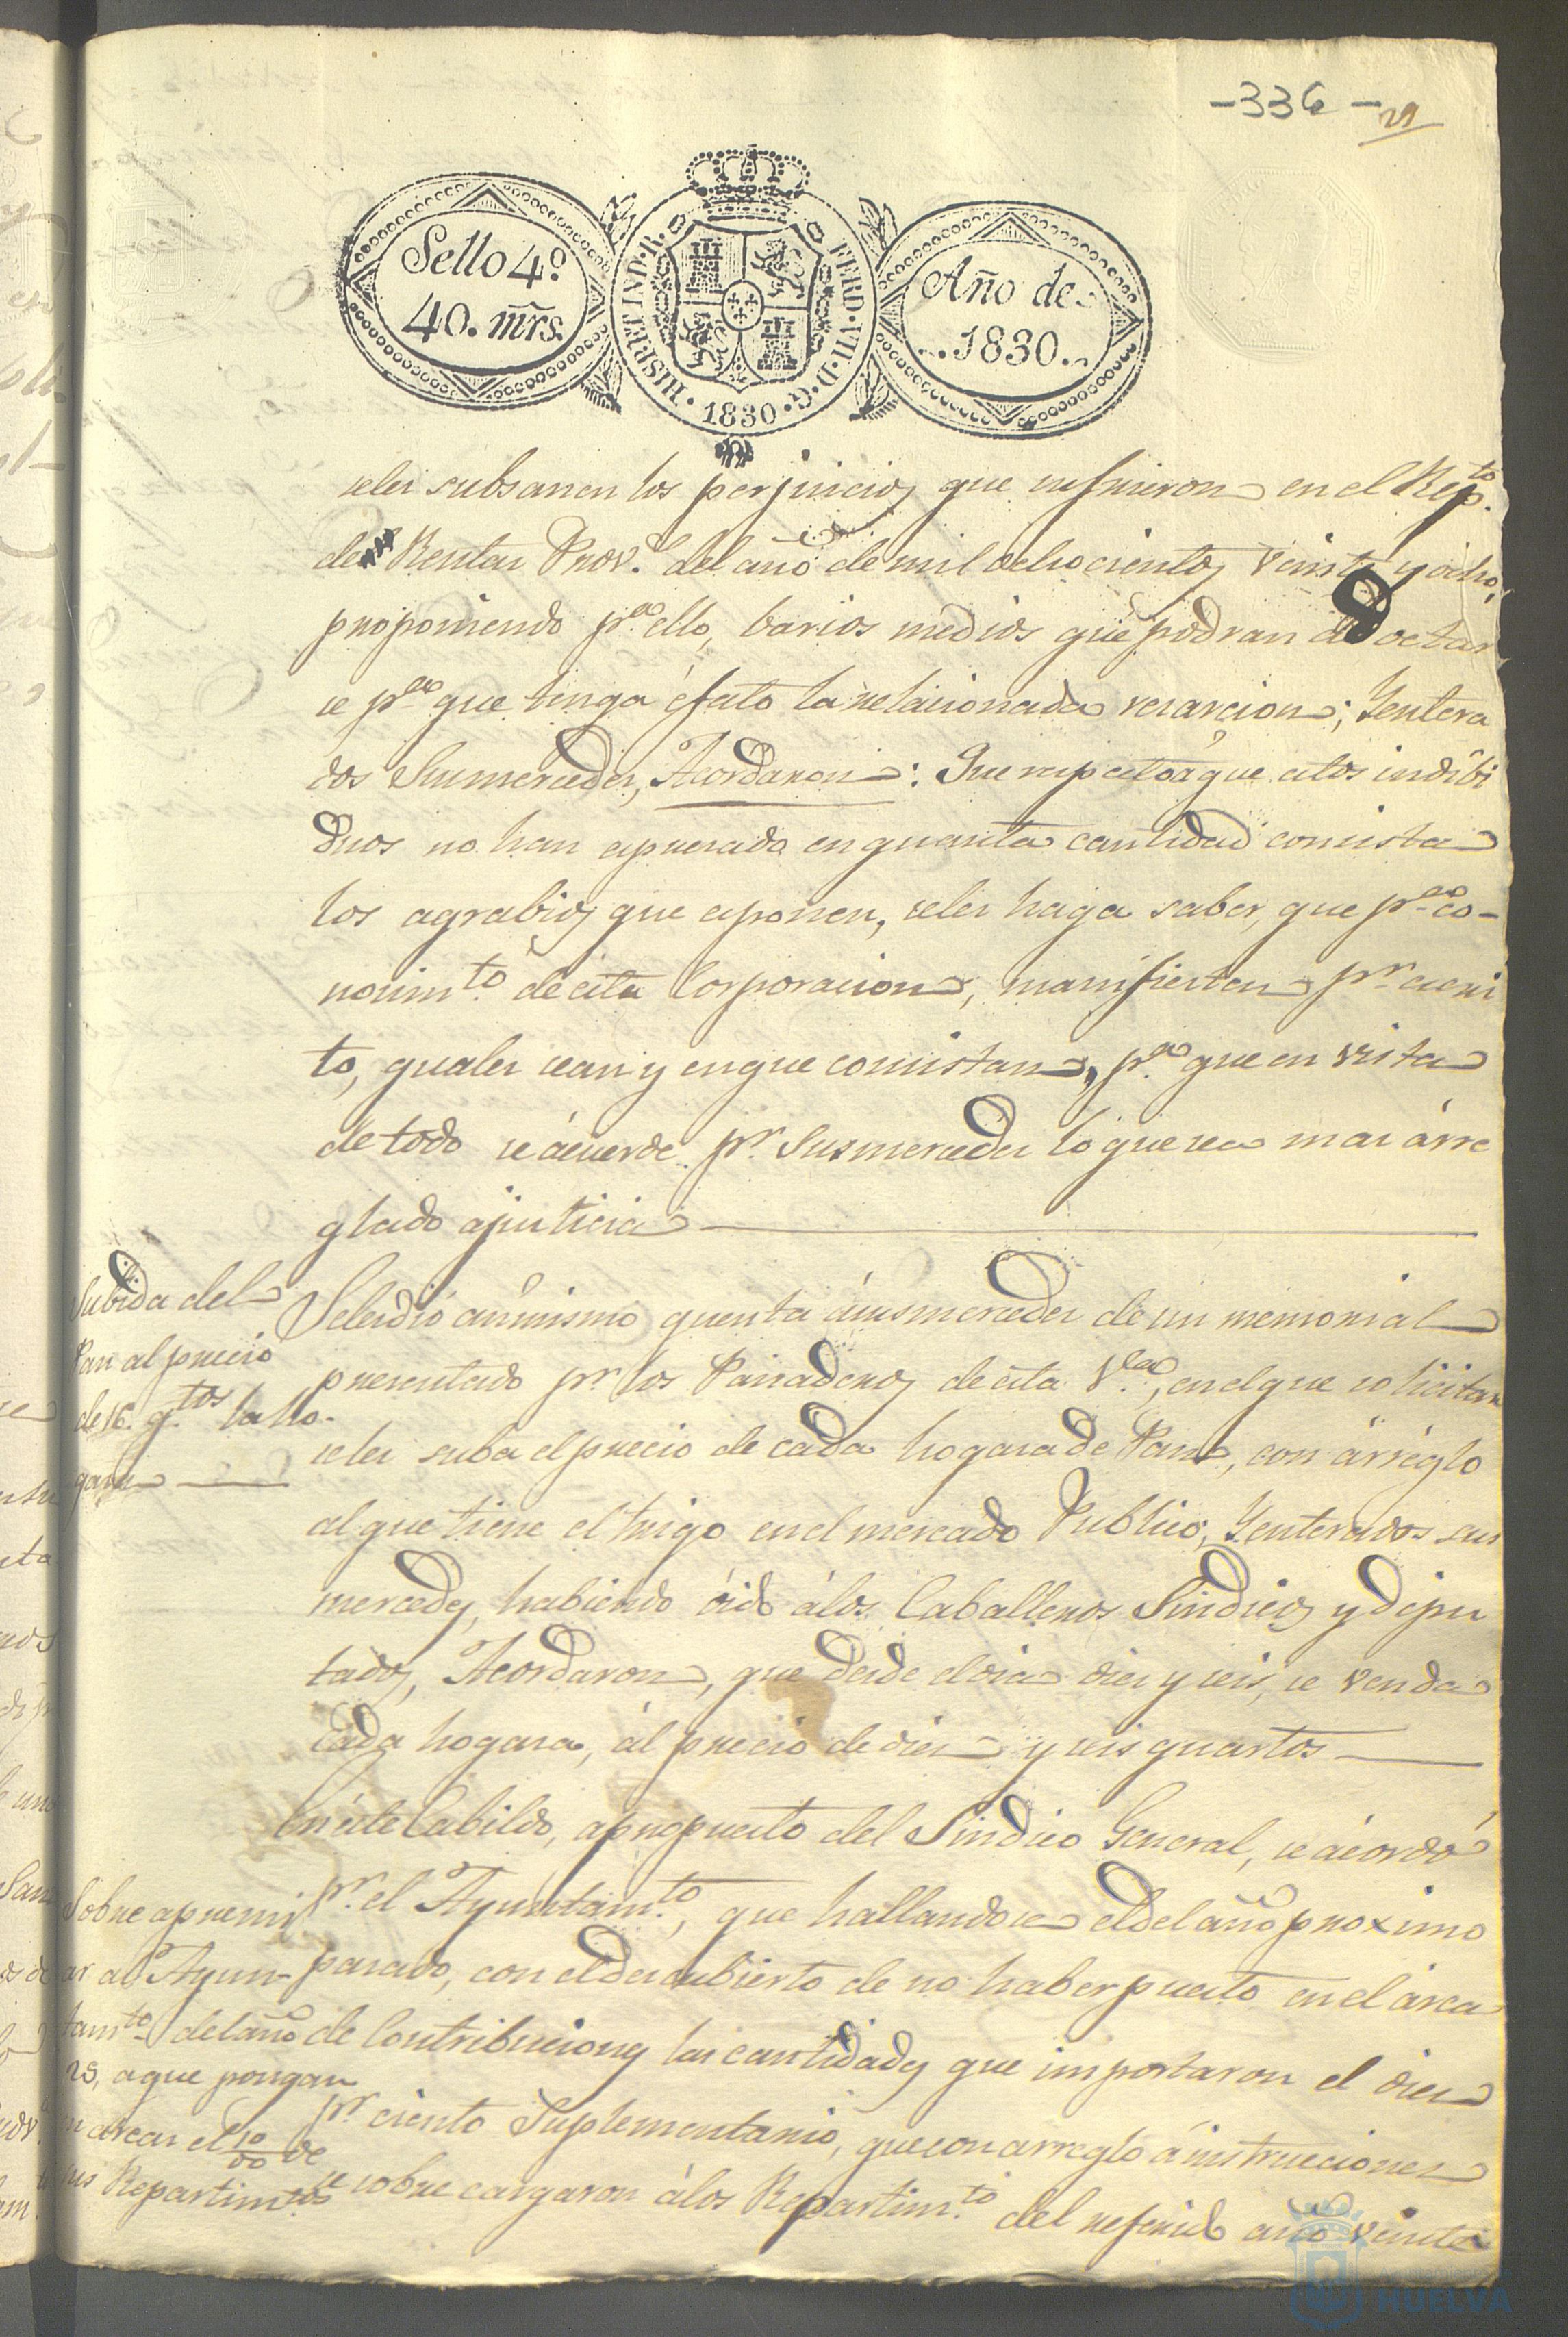 -336-
29
Sello 4º
40. mrs.
HISPET IND. R. FERD. VII. D. G. 1830
Año de
1830.
seles subsanen los perjuicios que sufrieron en el Repto.
de Rentas Provs. del año de mil ochocientos veinte y ocho,
proponiendo pa. ello, barios medios que podran adoctar
se pa. que tenga éfeto la relacionada resarcion; Yentera
dos Susmercedes, Acordaron: Que respecto á que estos indibi
duos no han espresado en quanta cantidad consista
los agrabios que esponen, seles haga saber, que pa. co-
nocimto. de esta Corporacion, manifiesten pr. escri
to, quales sean y enque consistan, pa. que en vista
de todo se ácuerde pr. Susmercedes lo que sea mas árre
glado ajusticia
Subida del
Pan al precio
de 16. qtos. la ho-
gasa
Seledió asimismo quenta ásusmercedes de un memorial
presentado pr. los Panaderos de esta Va., enelque solicitan
seles suba el precio de cada hogasa de Pan, con árreglo
al que tiene el trigo en el mercado Publico, Yenterados sus
mercedes, habiendo óido álos Caballeros Sindicos y dipu
tados, Acordaron, que desde eldia dies y seis, se venda
Cada hogasa, ál precio de dies y seis quartos
En éste Cabildo, apropuesto del Sindico General, se ácordó
pr. el Ayuntamto., que hallandose eldel año proximo
pasado, con eldescubierto de no haber puesto en el arca
de Contribuciones las cantidades que importaron el dies
pr. ciento Suplementario, quecon arreglo áinstrucciones
se sobre cargaron álos Repartimto. del referido año veinte
Sobre apremi
ar al Ayun-
tamto. del año
29, aque pongan
en arcas el 10 %00 de
sus Repartimtos.
HUELVA